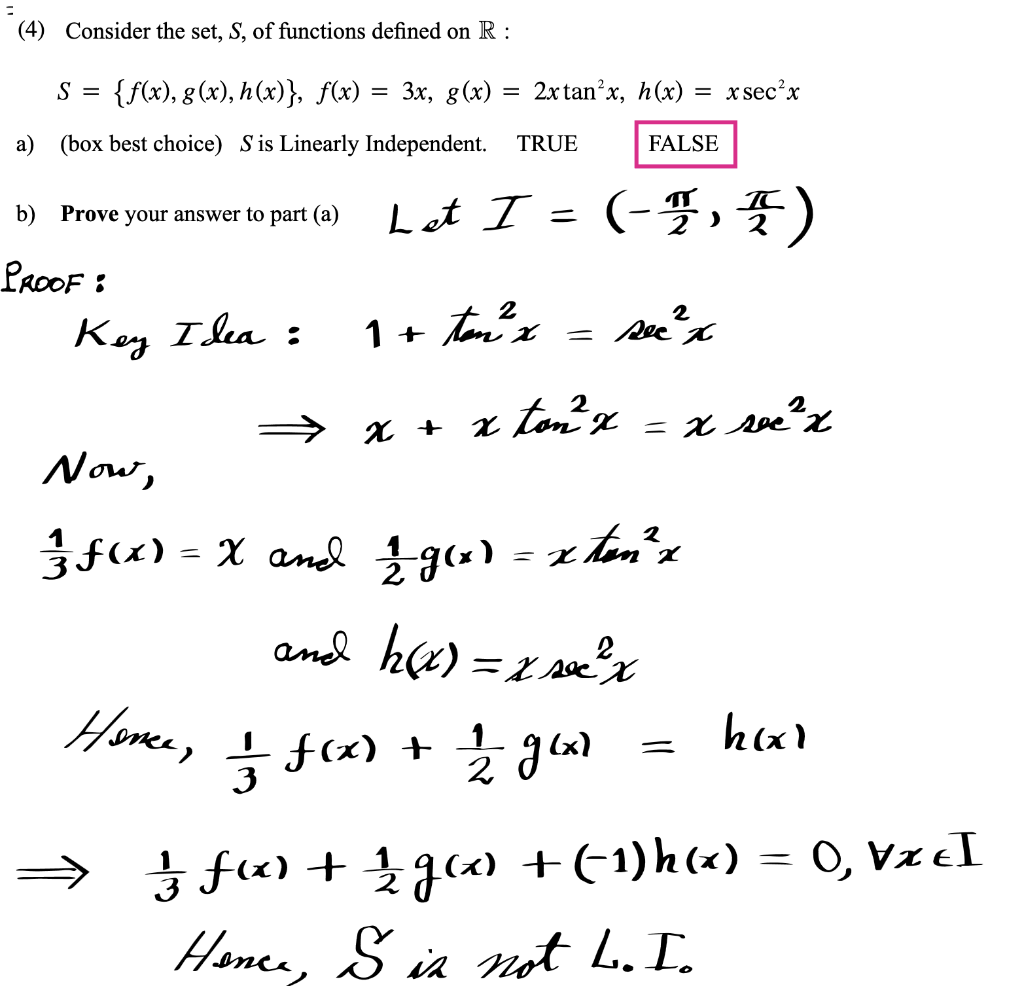 (4) Consider the set, S, of functions defined on ℝ :
S = {f(x), g(x), h(x)}, f(x) = 3x, g(x) = 2x tan²x, h(x) = x sec²x
a) (box best choice) S is Linearly Independent. TRUE FALSE
b) Prove your answer to part (a) Let I = (-π/2, π/2)
PROOF :
Key Idea : 1 + tan²x = sec²x
⟹ x + x tan²x = x sec²x
Now,
1/3 f(x) = x and 1/2 g(x) = x tan²x
and h(x) = x sec²x
Hence, 1/3 f(x) + 1/2 g(x) = h(x)
⟹ 1/3 f(x) + 1/2 g(x) + (-1)h(x) = 0, ∀x∈I
Hence, S is not L.I.